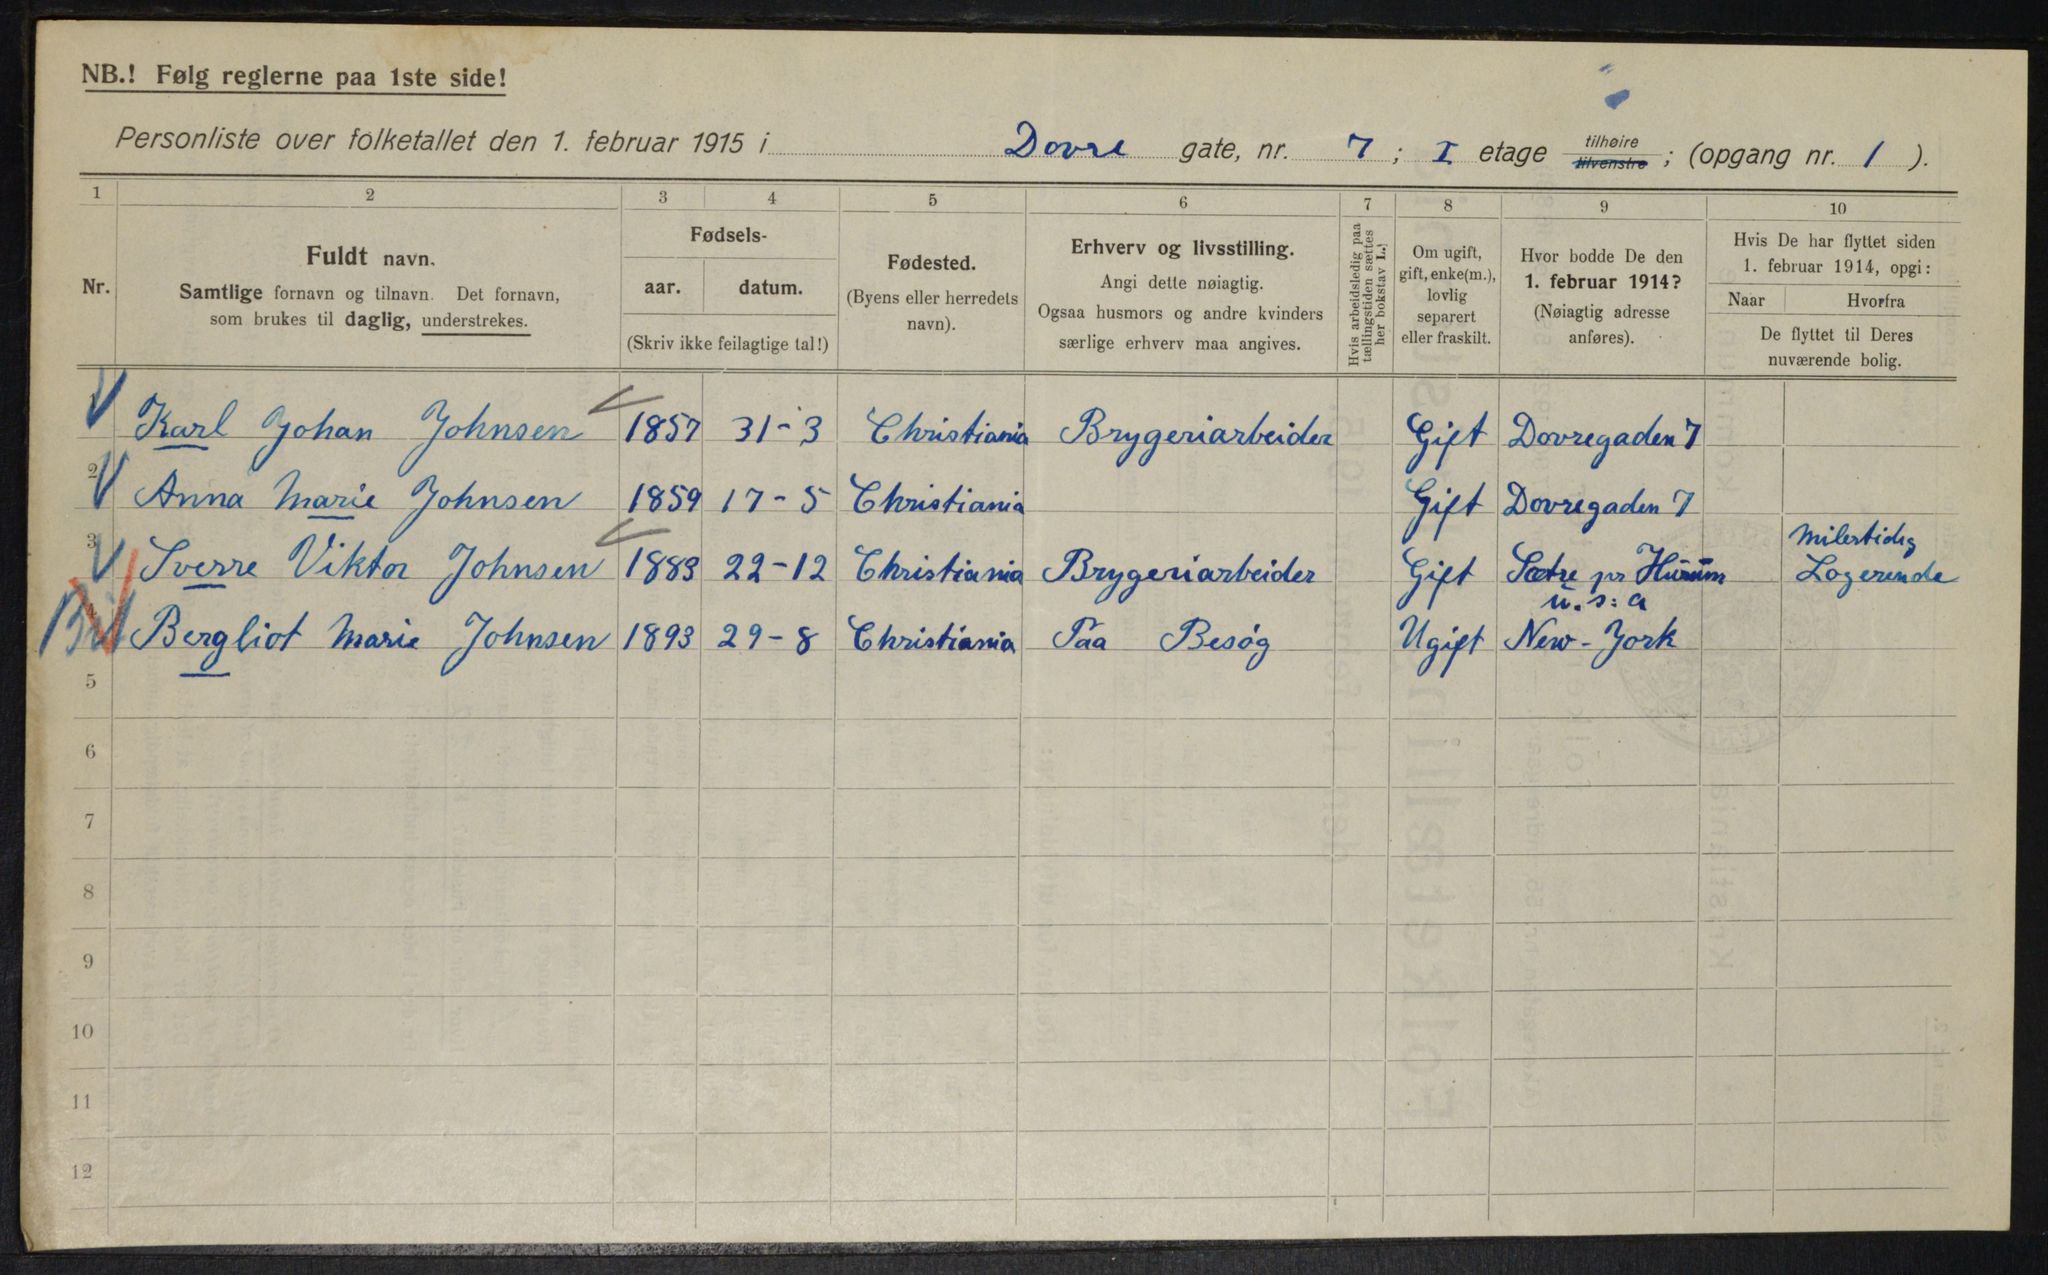 NB.! Følg reglerne paa 1ste side!
Personliste over folketallet den 1. februar 1915 i Dovre gate, nr. 7; I etage tilhøire tilvenstre; (opgang nr. 1).
1 2 3 4 5 6 7 8 9 10
Nr.
Fuldt navn.
Samtlige fornavn og tilnavn. Det fornavn,
som brukes til daglig, understrekes.
Fødsels-
aar. datum.
(Skriv ikke feilagtige tal!)
Fødested.
(Byens eller herredets
navn).
Erhverv og livsstilling.
Angi dette nøiagtig.
Ogsaa husmors og andre kvinders
særlige erhverv maa angives.
Hvis arbeidsledig paa
tællingstiden sættes
her bokstav L.!
Om ugift,
gift, enke(m.),
lovlig
separert
eller fraskilt.
Hvor bodde De den
1. februar 1914?
(Nøiagtig adresse
anføres).
Hvis De har flyttet siden
1. februar 1914, opgi:
Naar Hvorfra
De flyttet til Deres
nuværende bolig.
Karl Johan Johnsen 1857 31-3 Christiania Brygeriarbeider Gift Dovregaden 7
2 Anna Marie Johnsen 1859 17-5 Christiania Gift Dovregaden 7
Milertidig
3 Sverre Viktor Johnsen 1883 22-12 Christiania Brygeriarbeider Gift Sætre pr Hurum Logerende
u.s:a
4 Bergliot Marie Johnsen 1893 29-8 Christiania Paa Besøg Ugift New-York
5
6
7
8
9
10
11
12